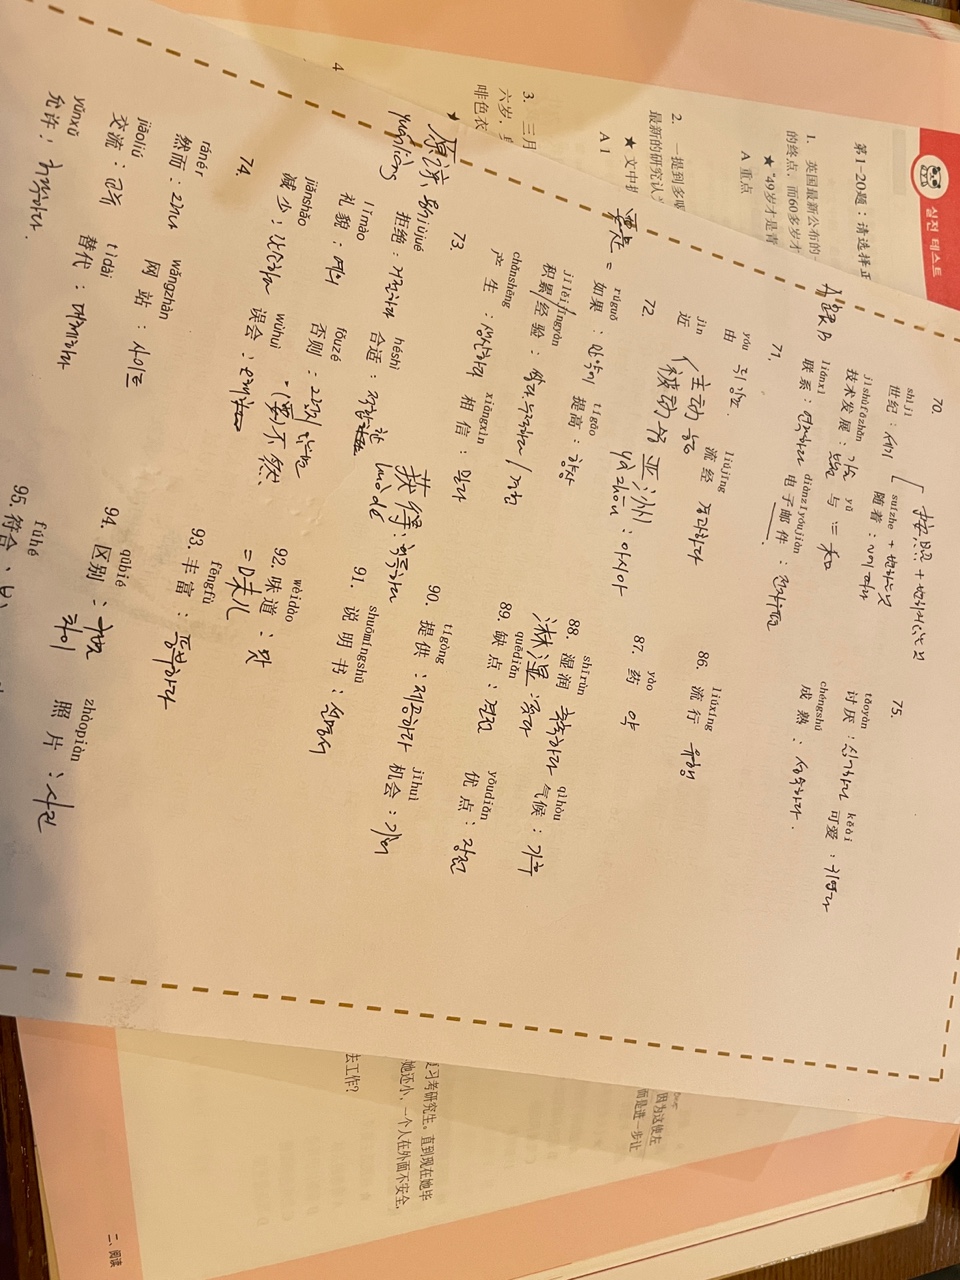 실전 테스트
第1-20题：请选择正
1. 英国最新公布的
的终点，而60多岁才
★ "49岁才是青
A 重点
2. 一提到多喝
最新的研究认
★ 文中
A 1
3. 三月
六岁，
啡色衣
★
4
70.
shìjì
世纪：세기
jìshùfāzhǎn
技术发展：기술 발전
suízhe
随着 :
按照 +
yǔ
与 := 和
71.
liánxì
联系：연락하다
diànzǐyóujiàn
电子邮件：전자우편
yóu
由
liújīng
流经 경과하다
jìn
近
主动
被动
亚洲 : 아시아
yà zhōu
72.
要是 =
rúguǒ
如果 : 만약에
tígāo
提高：향상
jīlěi/jīngyàn
积累/经验：
chǎnshēng
产生：생산하다
xiāngxìn
相信：믿다
73.
原谅
yuánliàng
jùjué
拒绝：거절하다
héshì
合适：적합한
获得 : 획득하다
huò dé
lǐmào
礼貌：예의
fǒuzé
否则：그렇지 않으면
(要)不然
jiǎnshǎo
减少：감소하다
wùhuì
误会：오해
74.
ránér
然而：그러나
wǎngzhàn
网站：사이트
jiāoliú
交流：교류
tìdài
替代：대체하다
yǔnxǔ
允许：허락하다.
75.
tǎoyàn
讨厌：싫어하다
kěài
可爱：귀엽다
chéngshú
成熟：성숙하다.
86.
liúxíng
流行 유행
87.
yào
药 약
88.
shīrùn
湿润 촉촉하다
qìhòu
气候：기후
淋湿 : 젖다
89.
quēdiǎn
缺点：결점
yōudiǎn
优点：장점
90.
tígōng
提供：제공하다
jīhuì
机会：기회
91.
shuōmíngshū
说明书：설명서
92.
wèidào
味道：맛
= 味儿
93.
fēngfù
丰富：풍부하다
94.
qūbié
区别：구별
차이
zhàopiàn
照片：사진
95.
fúhé
符合：
因为这使左
而是进一步让
复习考研究生。直到现在她毕
她还小，一个人在外面不安全，
去工作?
二、阅读